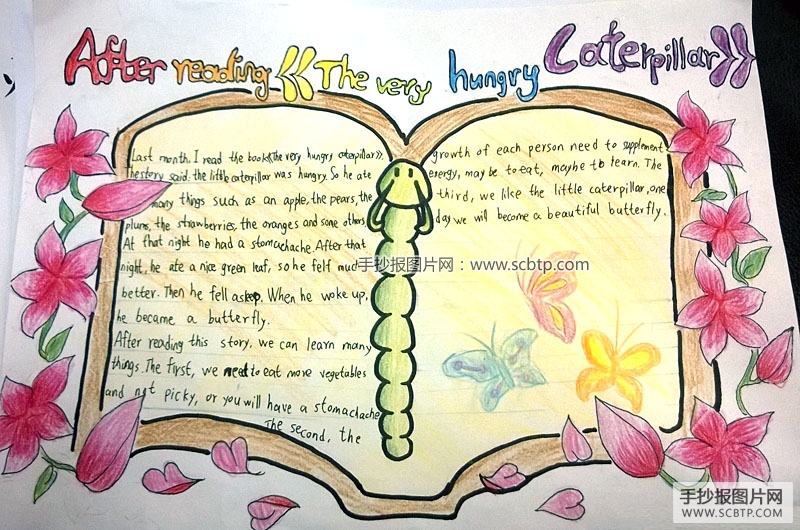 After reading 《The very hungry Caterpillar》
Last month, I read the book《The very hungry caterpillar》,
hestory said. the little caterpillar was hungry. So he ate
many things such as an apple, the pears, the
plums, the strawberries, the oranges and some others
At that night he had a stomachache. After that
night, he ate a nice green leaf, so he felf mud
better. Then he fell asleep. When he woke up,
he became a butterfly.
After reading this story. we can learn many
things. The first, we need to eat more vegetables
and not picky, or you will have a stomachache
The second, the
growth of each person need to supplement
energy, may be to eat, maybe to learn. The
third, we like the little caterpillar, one
day we will become a beautiful butterfly.
手抄报图片网：www.scbtp.com
手抄报图片网
WWW.SCBTP.COM